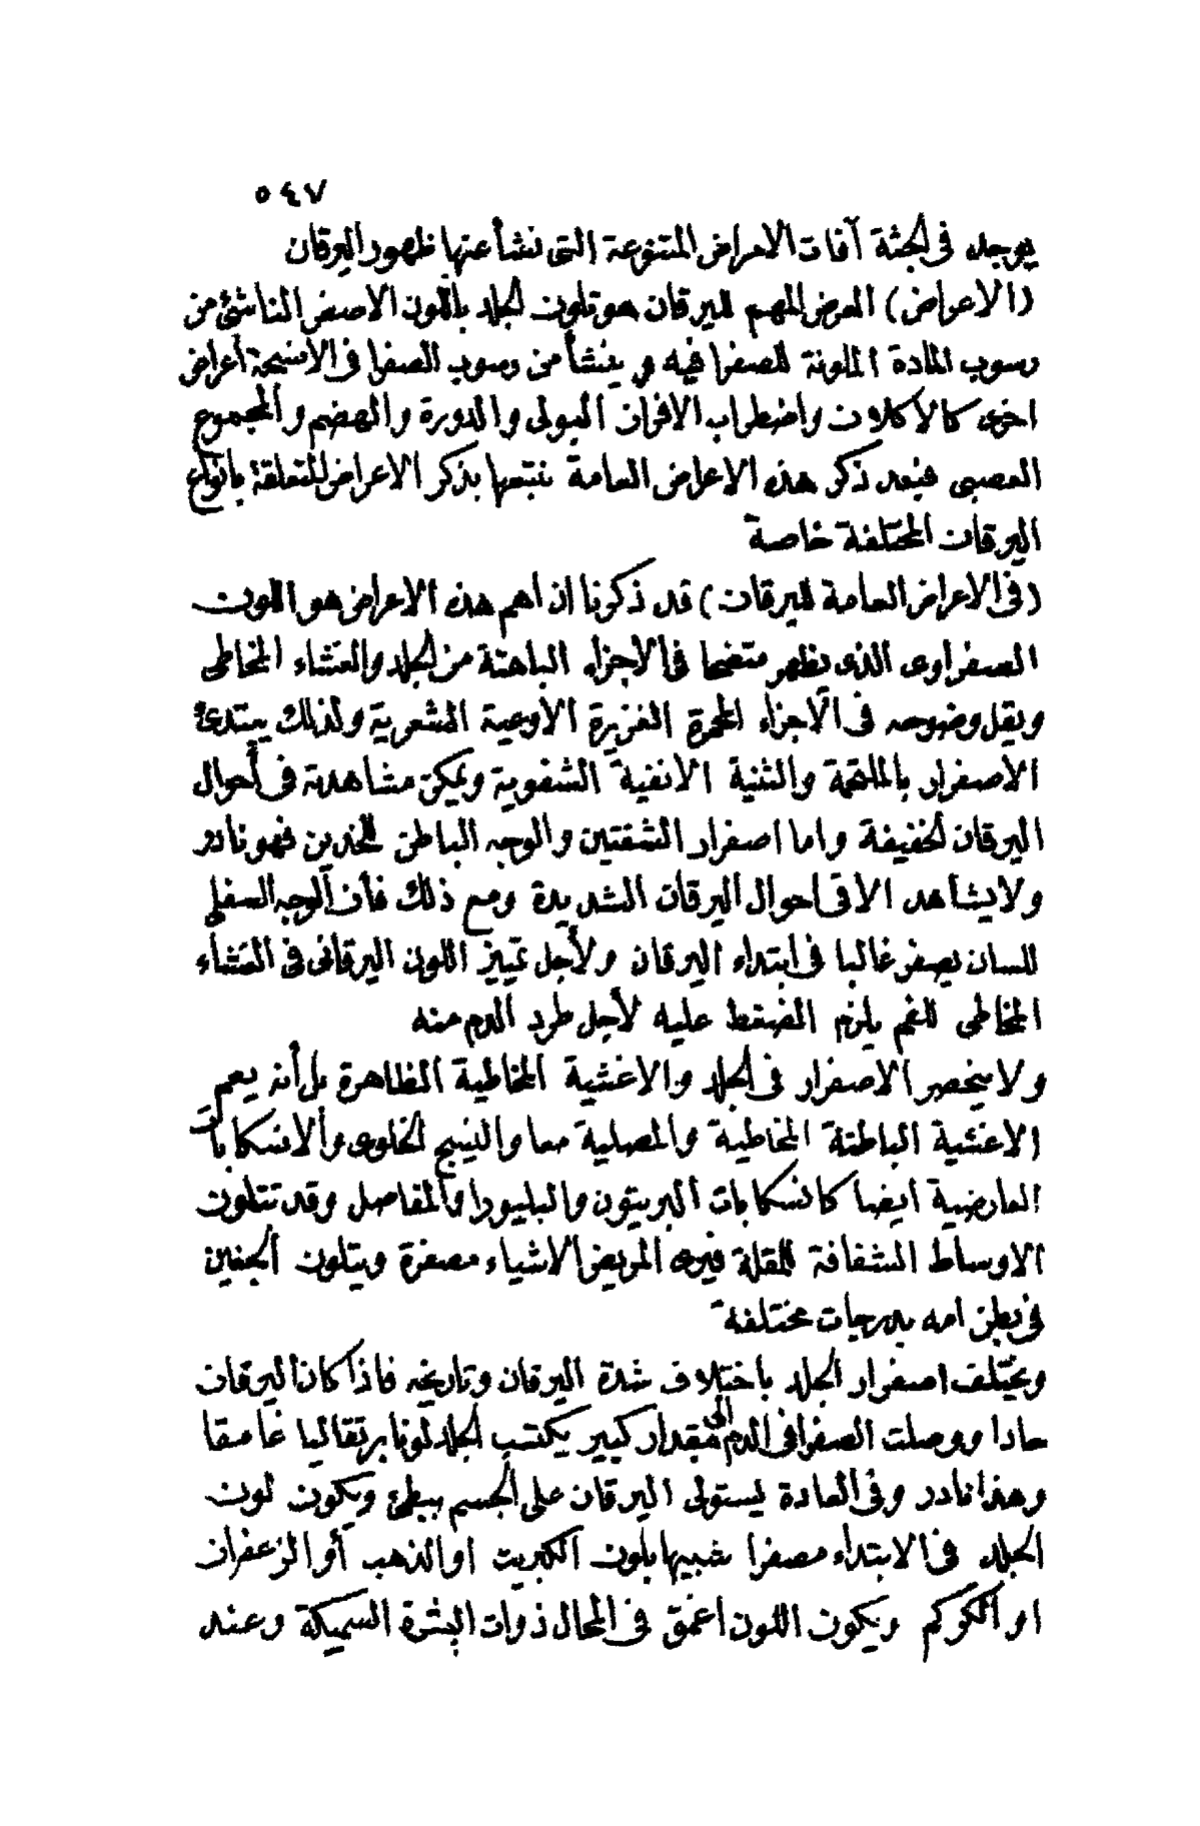 ٥٤٧
يوجد فى الجثة آفات الامراض المتنوعة التى نشأ عنها ظهور اليرقان
(الاعراض) العرض المهم لليرقان هو تلون الجلد باللون الاصفر الناشئ من
رسوب المادة الملونة للصفرا فيه و ينشأ من رسوب الصفرا فى الانسجة أعراض
اخرى كالاكلان واضطراب الافراز البولى والدورة والهضم والمجموع
العصبى فبعد ذكر هذه الاعراض العامة نتبعها بذكر الاعراض المتعلقة بانواع
اليرقان المختلفة خاصة
(فى الاعراض العامة لليرقان) قد ذكرنا ان أهم هذه الاعراض هو اللون
الصفراوى الذى يظهر متضحا فى الاجزاء الباهتة من الجلد والغشاء المخاطى
ويقل وضوحه فى الاجزاء المحمرة الغزيرة الأوعية الشعرية ولذلك يبتدئ
الاصفرار بالملتحمة والثنية الانفية الشفوية ويمكن مشاهدته فى أحوال
اليرقان الخفيفة واما اصفرار الشفتين والوجه الباطن للخدين فهو نادر
ولا يشاهد الا فى احوال اليرقان الشديدة ومع ذلك فان الوجه السفلى
للسان يصفر غالبا فى ابتداء اليرقان ولأجل تمييز اللون اليرقانى فى الغشاء
المخاطى للفم يلزم الضغط عليه لأجل طرد الدم منه
ولا ينحصر الاصفرار فى الجلد والاغشية المخاطية الظاهرة بل أنه يعم
الاغشية الباطنة المخاطية والمصلية معا والنسيج الخلوى والانسكابات
العارضية ايضا كانسكابات البريتون والبليورا والمفاصل وقد تتلون
الاوساط الشفافة للمقلة فيرى المريض الاشياء مصفرة ويتلون الجنين
فى بطن امه بدرجات مختلفة
ويختلف اصفرار الجلد باختلاف شدة اليرقان وتاريخه فاذا كان اليرقان
حادا ووصلت الصفرا فى الدم الى مقدار كبير يكتسب الجلد لونا برتقاليا غامقا
وهذا نادر وفى العادة يستولى اليرقان على الجسم ببطئ ويكون لون
الجلد فى الابتداء مصفرا شبيها بلون الكبريت او الذهب أو الزعفران
او الكركم ويكون اللون اعمق فى المحال ذوات البشرة السميكة وعند